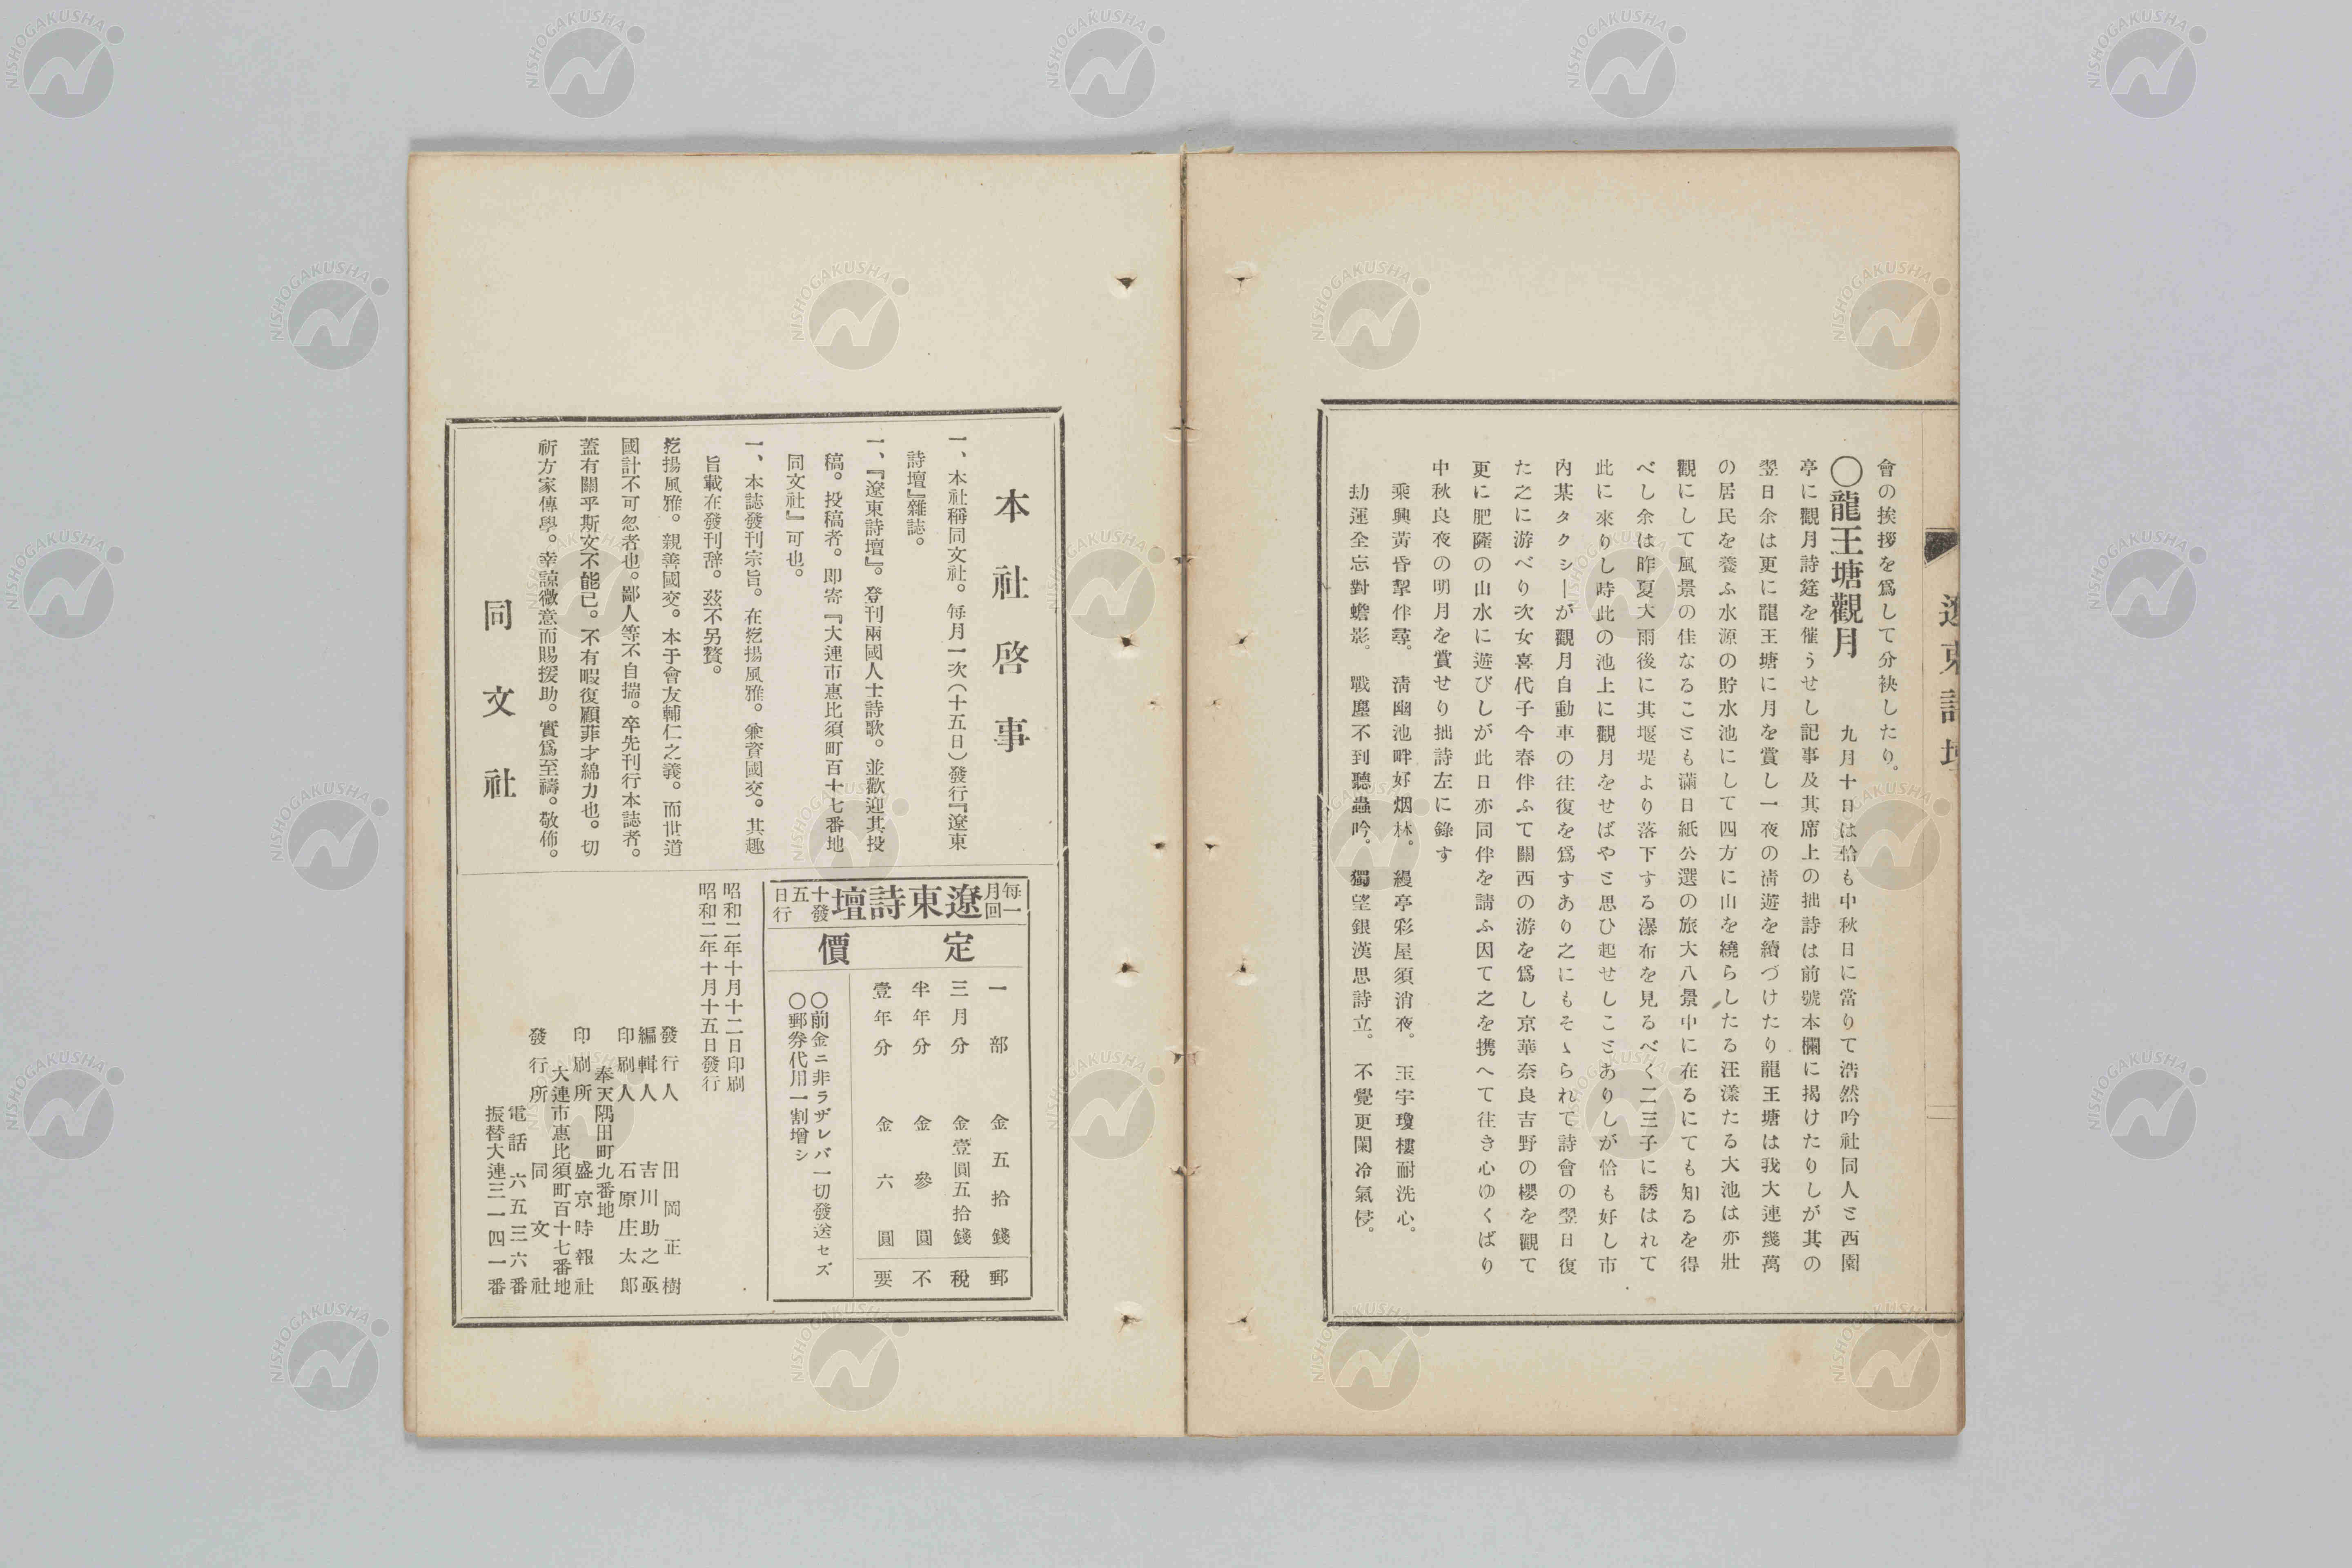 遼東詩壇
會の挨拶を爲して分袂したり。
〇龍王塘觀月　九月十日は恰も中秋日に當りて浩然吟社同人と西園
亭に觀月詩筵を催うせし記事及其席上の拙詩は前號本欄に揭けたりしが其の
翌日余は更に龍王塘に月を賞し一夜の淸遊を續づけたり龍王塘は我大連幾萬
の居民を養ふ水源の貯水池にして四方に山を繞らしたる汪漾たる大池は亦壯
觀にして風景の佳なることも滿日紙公選の旅大八景中に在るにても知るを得
べし余は昨夏大雨後に其堰堤より落下する瀑布を見るべく二三子に誘はれて
此に來りし時此の池上に觀月をせばやと思ひ起せしことありしが恰も好し市
內某タクシーが觀月自動車の往復を爲すあり之にもそゝられて詩會の翌日復
た之に游べり次女喜代子今春伴ふて關西の游を爲し京華奈良吉野の櫻を觀て
更に肥薩の山水に遊びしが此日亦同伴を請ふ因て之を携へて往き心ゆくばり
中秋良夜の明月を賞せり拙詩左に錄す
乘興黃昏挈伴尋。　淸幽池畔好烟林。　縵亭彩屋須消夜。　玉宇瓊樓耐洗心。
劫運全忘對蟾影。　戰塵不到聽蟲吟。　獨望銀漢思詩立。　不覺更闌冷氣侵。
本社啓事
一、本社稱同文社。每月一次（十五日）發行『遼東
詩壇』雜誌。
一、『遼東詩壇』。登刊兩國人士詩歌。並歡迎其投
稿。投稿者。卽寄『大連市惠比須町百十七番地
同文社』可也。
一、本誌發刊宗旨。在扢揚風雅。兼資國交。其趣
旨載在發刊辭。玆不另贅。
扢揚風雅。親善國交。本于會友輔仁之義。而世道
國計不可忽者也。鄙人等不自揣。卒先刊行本誌者。
蓋有關乎斯文不能已。不有暇復顧菲才綿力也。切
祈方家傳學。幸諒微意而賜援助。實爲至禱。敬佈。
同文社
每月一回
遼東詩壇
十五日發行
定價
一部　金五拾錢　郵
三月分　金壹圓五拾錢　稅
半年分　金參圓　不
壹年分　金六圓　要
〇前金ニ非ラザレバ一切發送セズ
〇郵券代用一割增シ
昭和二年十月十二日印刷
昭和二年十月十五日發行
發行人　田岡正樹
編輯人　吉川助之亟
印刷人　石原庄太郎
奉天隅田町九番地
印刷所　盛京時報社
大連市惠比須町百十七番地
發行所　同文社
電話六五三六番
振替大連三一四一番